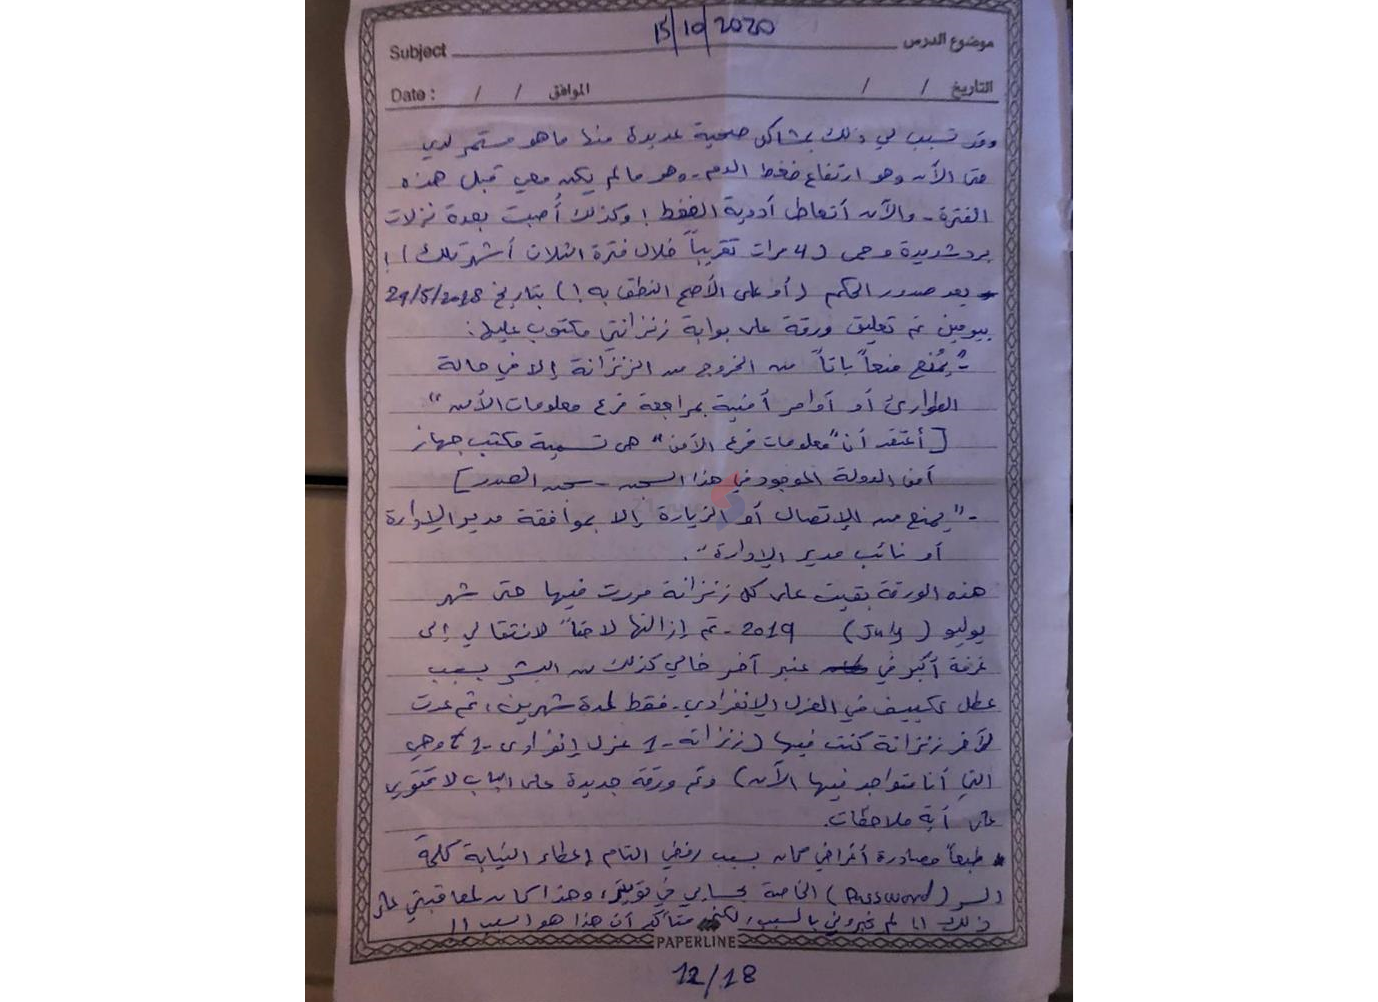 15/10/2020
Subject موضوع الدرس
Date : / / الموافق / / التاريخ
وقد تسبب لي ذلك بمشاكل صحية عديدة منها ما هو مستمر لدي
حتى الآن وهو ارتفاع ضغط الدم - وهو ما لم يكن معي قبل هذه
الفترة - والآن أتعاطى أدوية الضغط! وكذلك أُصبت بعدة نزلات
برد شديدة وحمى (4 مرات تقريباً خلال فترة الثلاث أشهر تلك)!
بعد صدور الحكم (أو على الأصح النطق به!) بتاريخ 29/5/2018
بيومين تم تعليق ورقة على بوابة زنزانتي مكتوب عليها:
-"يُمنع منعاً باتاً من الخروج من الزنزانة إلا في حالة
الطوارئ أو أوامر أمنية بمراجعة فرع معلومات الأمن"
[أعتقد أن "معلومات فرع الأمن" هي تسمية مكتب جهاز
أمن الدولة الموجود في هذا السجن - سجن الصدر]
-"يمنع من الإتصال أو الزيارة إلا بموافقة مدير الإدارة
أو نائب مدير الإدارة".
هذه الورقة بقيت على كل زنزانة مررت فيها حتى شهر
يوليو (July) 2019 - تم إزالتها لاحقاً لانتقالي إلى
غرفة أكبر في عنبر آخر خالي كذلك من البشر بسبب
عطل تكييف في العزل الإنفرادي - فقط لمدة شهرين، ثم عدت
لآخر زنزانة كنت فيها (زنزانة -1 عزل إنفرادي -1 وهي
التي أنا متواجد فيها الآن) وتم ورقة جديدة على الباب لا تحتوي
على أية ملاحظات.
* طبعاً مصادرة أغراضي كان بسبب رفضي التام إعطاء النيابة كلمة
السر (Password) الخاصة بحسابي في تويتر، وهذا كان لمعاقبتي على
ذلك !! لم يخبروني بالسبب، لكني متأكد أن هذا هو السبب !!
PAPERLINE
12/18